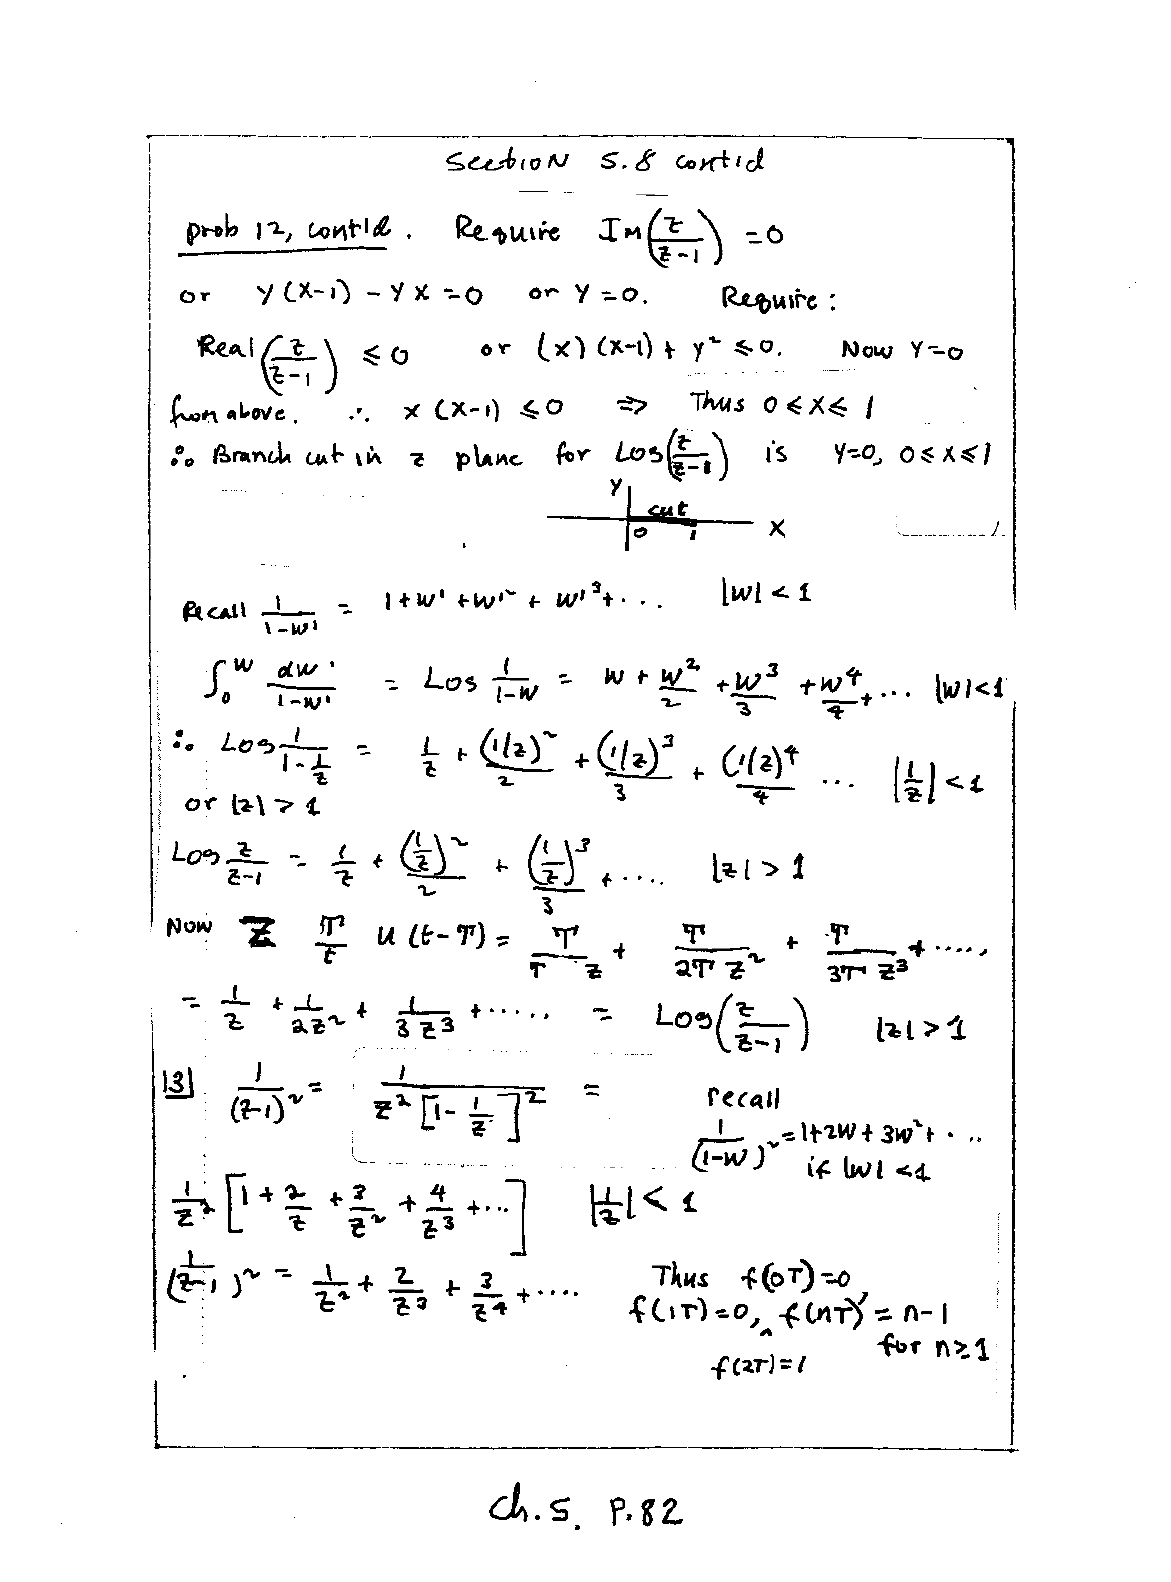 Section 5.8 cont'd
prob 12, cont'd. Require Im(z/(z-1)) = 0
or y(x-1) - yx = 0 or y = 0. Require:
Real(z/(z-1)) ≤ 0 or (x)(x-1) + y² ≤ 0. Now y=0
from above. ∴ x(x-1) ≤ 0 ⇒ Thus 0 ≤ x ≤ 1
∴ Branch cut in z plane for Log(z/(z-1)) is y=0, 0≤x≤1
y cut
0 1 x
Recall 1/(1-w') = 1+w'+w'²+w'³+... |w| < 1
∫₀^w dw'/(1-w') = Log 1/(1-w) = w + w²/2 + w³/3 + w⁴/4 + ... |w|<1
∴ Log 1/(1-1/z) = 1/z + (1/z)²/2 + (1/z)³/3 + (1/z)⁴/4 ... |1/z| < 1
or |z| > 1
Log z/(z-1) = 1/z + (1/z)²/2 + (1/z)³/3 + .... |z| > 1
Now Z T/t u(t-T) = T/(T z) + T/(2T z²) + T/(3T z³) + .....
= 1/z + 1/(2z²) + 1/(3z³) + ..... = Log(z/(z-1)) |z| > 1
13| 1/(z-1)² = 1/(z²[1-1/z]²) = recall
1/(1-w)² = 1+2w+3w²+...
if |w| < 1
1/z² [1 + 2/z + 3/z² + 4/z³ + ...] |1/z| < 1
(1/(z-1))² = 1/z² + 2/z³ + 3/z⁴ + .... Thus f(0T)=0,
f(1T)=0, ^ f(nT) = n-1
for n≥1
f(2T)=1
Ch.5. P.82